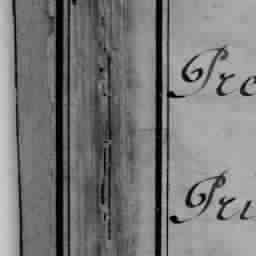 Pre
Pri